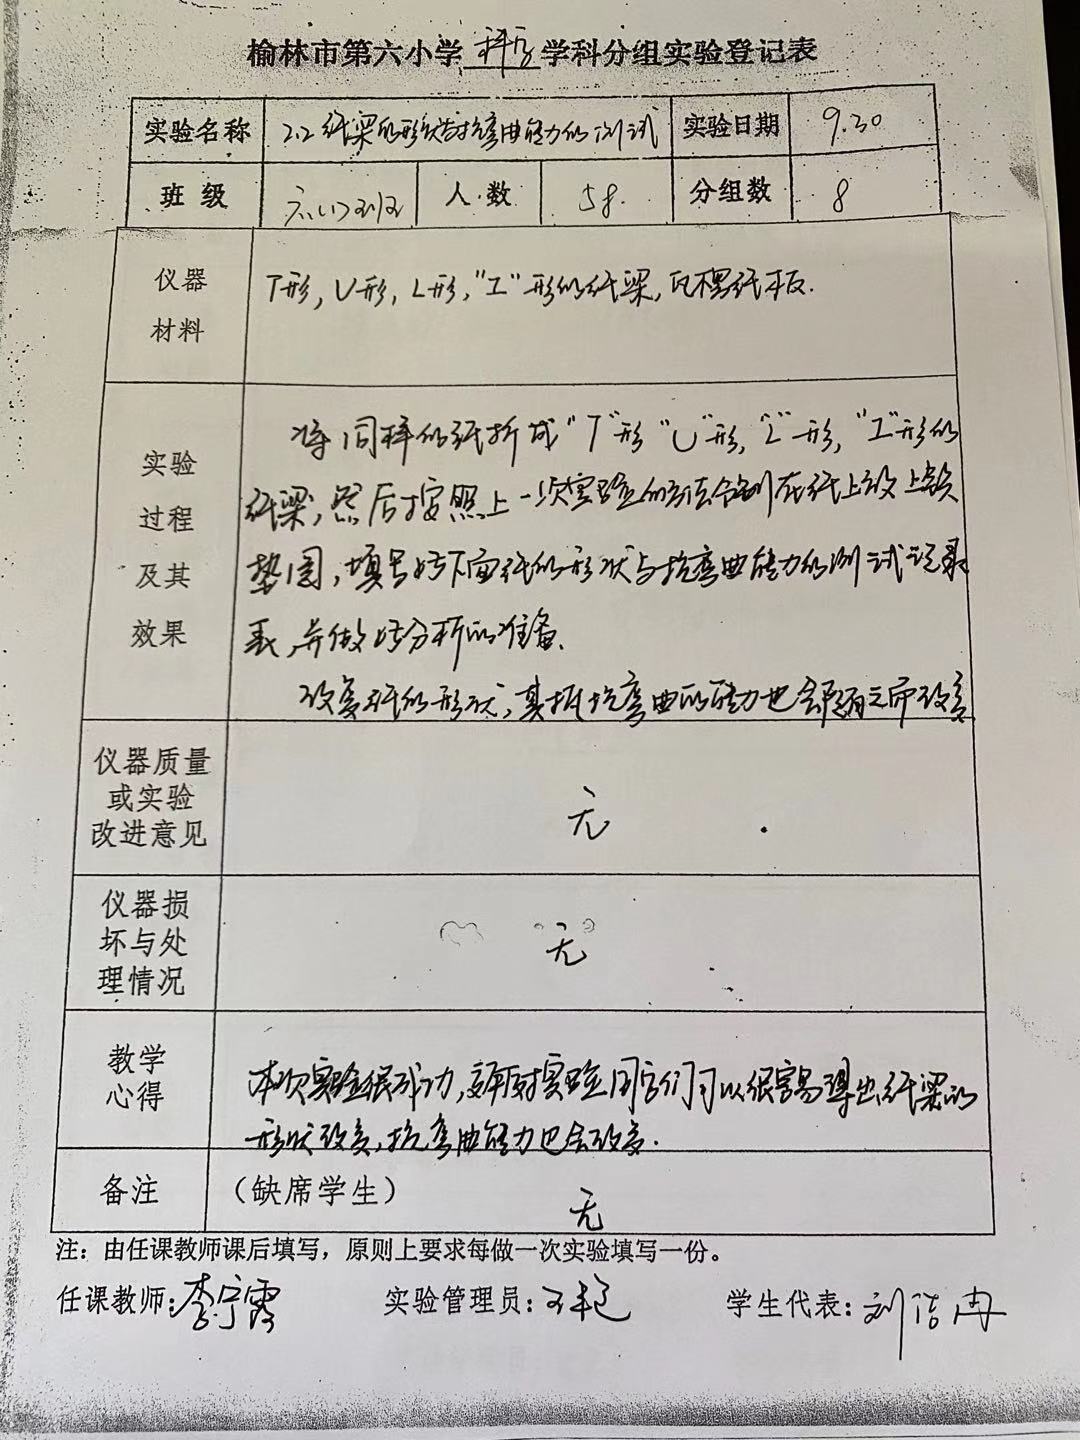 榆林市第六小学 科学 学科分组实验登记表
实验名称 2.2纸梁的形状与抗弯曲能力的测试 实验日期 9.30
班 级 六(1)班 人数 58. 分组数 8
仪器
材料
T形,U形,L形,"工"形的纸梁,瓦楞纸板.
实验
过程
及其
效果
将同样的纸折成"T"形"U"形,"L"形,"工"形的
纸梁,然后按照上一次实验的方法分别在纸上放上
垫圈,填写好下面纸的形状与抗弯曲能力的测试记录
表,并做好分析的准备.
改变纸的形状,其抵抗弯曲的能力也会随之而改变
仪器质量
或实验
改进意见
无
仪器损
坏与处
理情况
无
教学
心得
本次实验很成功,实验同学们可以很容易得出纸梁的
形状改变,抗弯曲能力也会改变.
备注 (缺席学生) 无
注:由任课教师课后填写,原则上要求每做一次实验填写一份。
任课教师:李宁霞 实验管理员:王艳 学生代表:刘